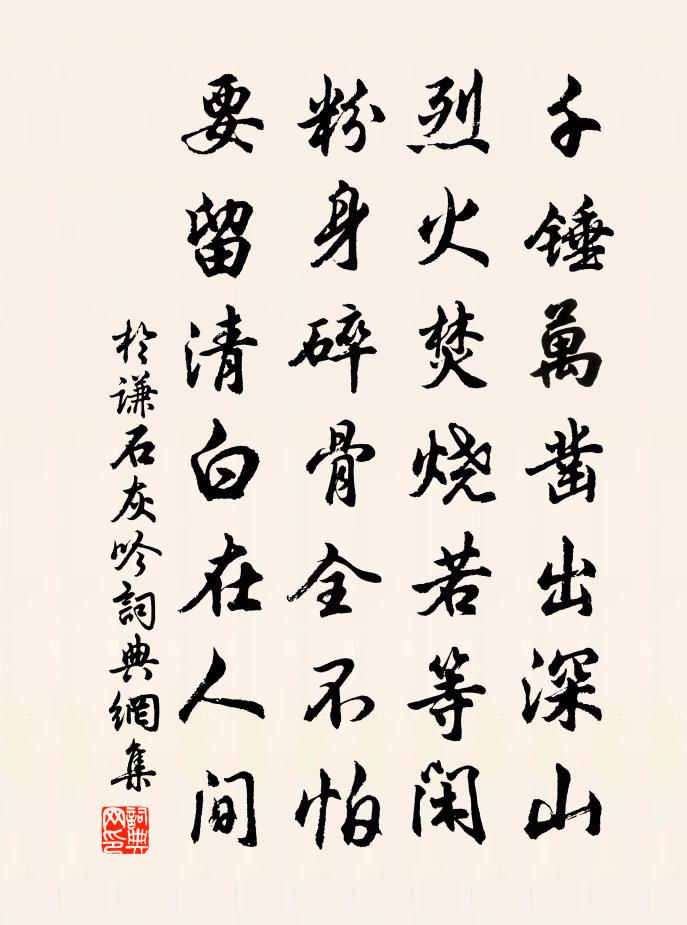 千錘萬凿出深山
烈火焚烧若等闲
粉身碎骨全不怕
要留清白在人间
於谦石灰吟詞典網集
詞典